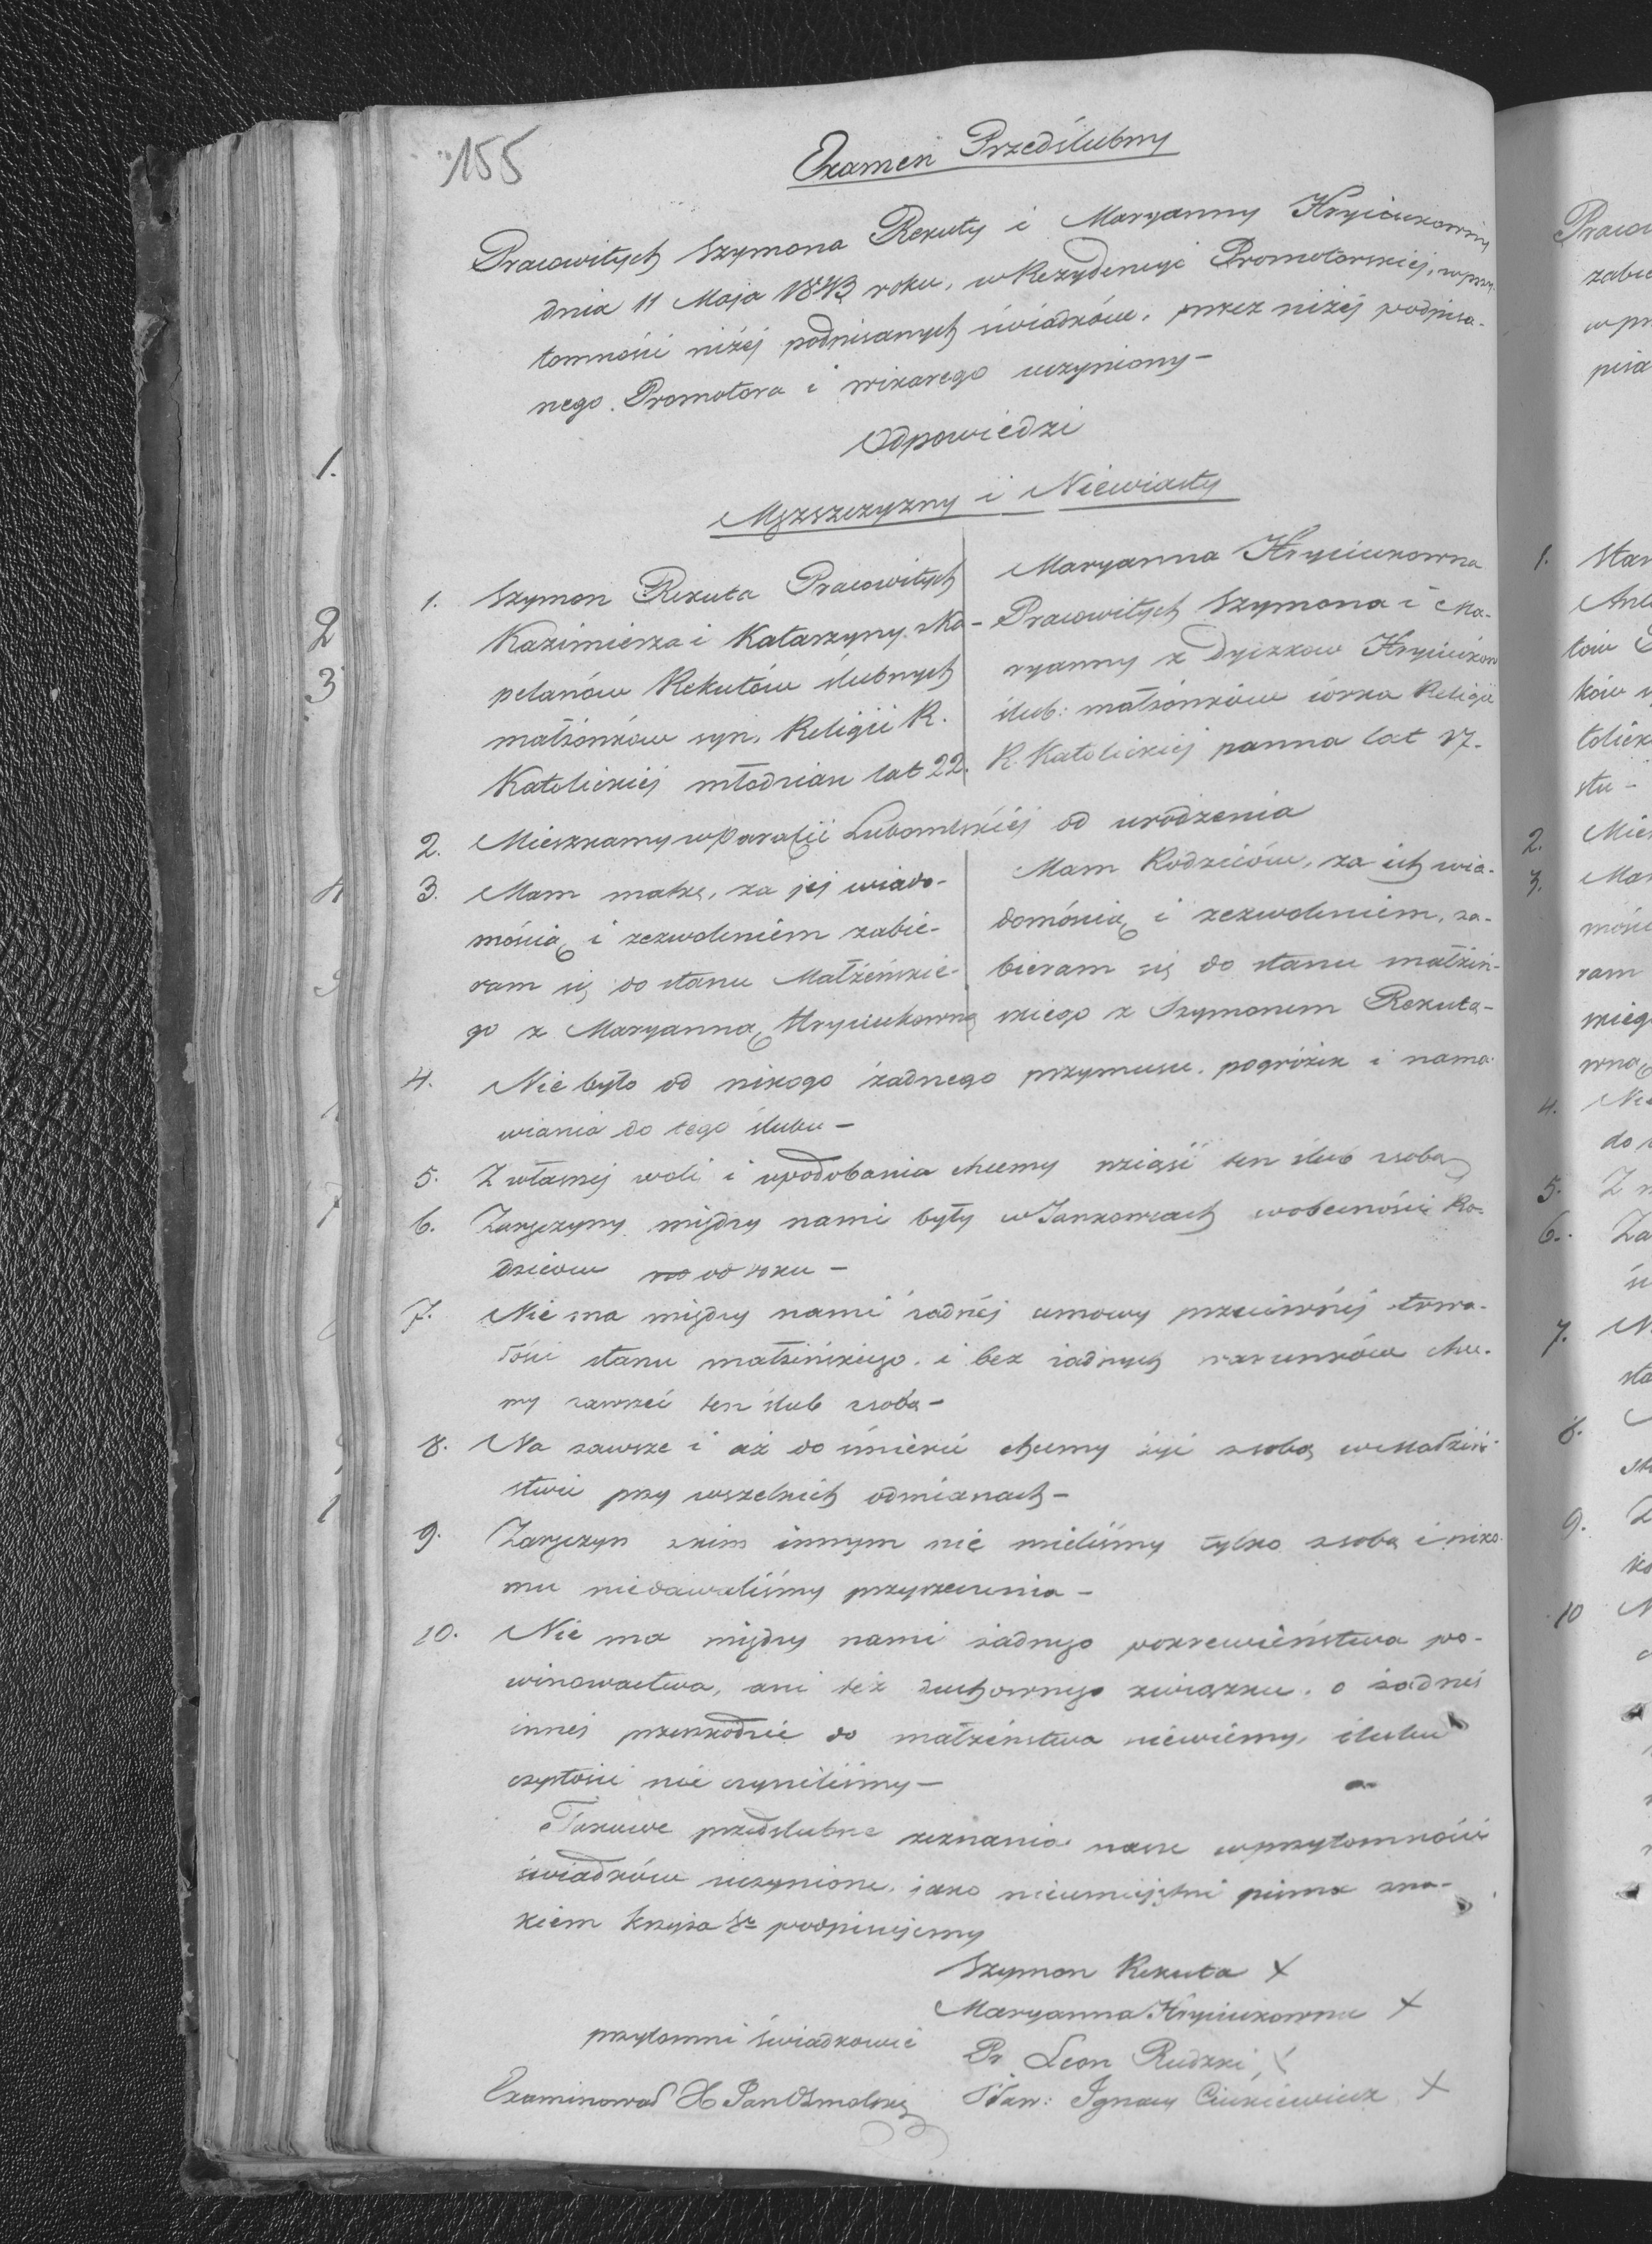 155
Examen Przedślubny
Pracowitych Szymona Rekuty i Maryanny Hryciukowny
dnia 11 Maja 1843 roku, w Rezydencyi Promotorskiej, w przy-
tomności niżej podpisanych świadków, przez niżej podpisa-
nego Promotora i wikarego uczyniony –
Odpowiedzi
Męzszczyzny i Niewiasty
1. Szymon Rekuta Pracowitych
Kazimierza i Katarzyny z Ko-
pelanów Rekutów ślubnych
małżonków syn, Religii R.
Katolickiej młodzian lat 22.
Maryanna Hryciukowna
Pracowitych Szymona i Ma-
ryanny z Dyczkow Hryciukow
ślub: małżonków córka Religii
R. Katolickiej panna lat 17.
2. Mieszkamy w Parafii Lubomlskiej od urodzenia
3. Mam matkę, za jej wiado-
mością i zezwoleniem zabie-
ram się do stanu Małżeńskie-
go z Maryanną Hryciukowną
Mam Rodziców, za ich wia-
domością i zezwoleniem, za-
bieram się do stanu małżeń-
skiego z Szymonem Rekutą –
4. Nie było od nikogo żadnego przymusu, pogróżek i nama-
wiania do tego ślubu –
5. Z własnej woli i upodobania chcemy wziąść ten ślub z sobą
6. Zaręczyny między nami były w Jankowcach w obecności Ro-
dziców od roku –
7. Nie ma między nami żadnej umowy przeciwnej trwa-
łości stanu małżeńskiego, i bez żadnych warunków chce-
my zawrzeć ten ślub z sobą –
8. Na zawsze i aż do śmierci chcemy żyć z sobą w Małżeń-
stwie przy wszelkich odmianach –
9. Zaręczyn z kim innym nie mieliśmy tylko z sobą i niko-
mu niedawaliśmy przyrzeczenia –
10. Nie ma między nami żadnego pokrewieństwa po-
winowactwa, ani też duchownego związku, o żadnej
innej przeszkodzie do małżeństwa niewiemy, ślubu
czystości nie czyniliśmy –
Takowe przedślubne zeznania nasze w przytomności
świadków uczynione, jako nieumiejętni pisma zna-
kiem krzyża S podpisujemy
Szymon Rekuta X
Maryanna Hryciukowna X
przytomni świadkowie
Leon Rudzki X
Examinował X Jan
Sław: Ignacy Ciukiewicz X
1.
2
3